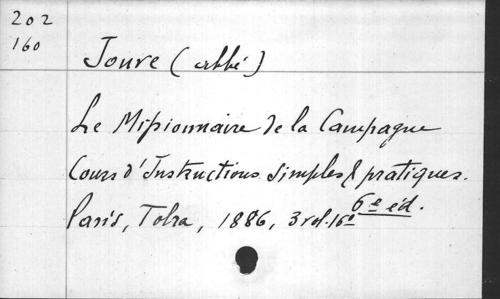 202
160
Jouve (abbé)
Le Missionnaire de la Campagne
Cours d'Instructions simples & pratiques.
Paris, Tolra, 1886, 3 vol. 16º 6e éd.